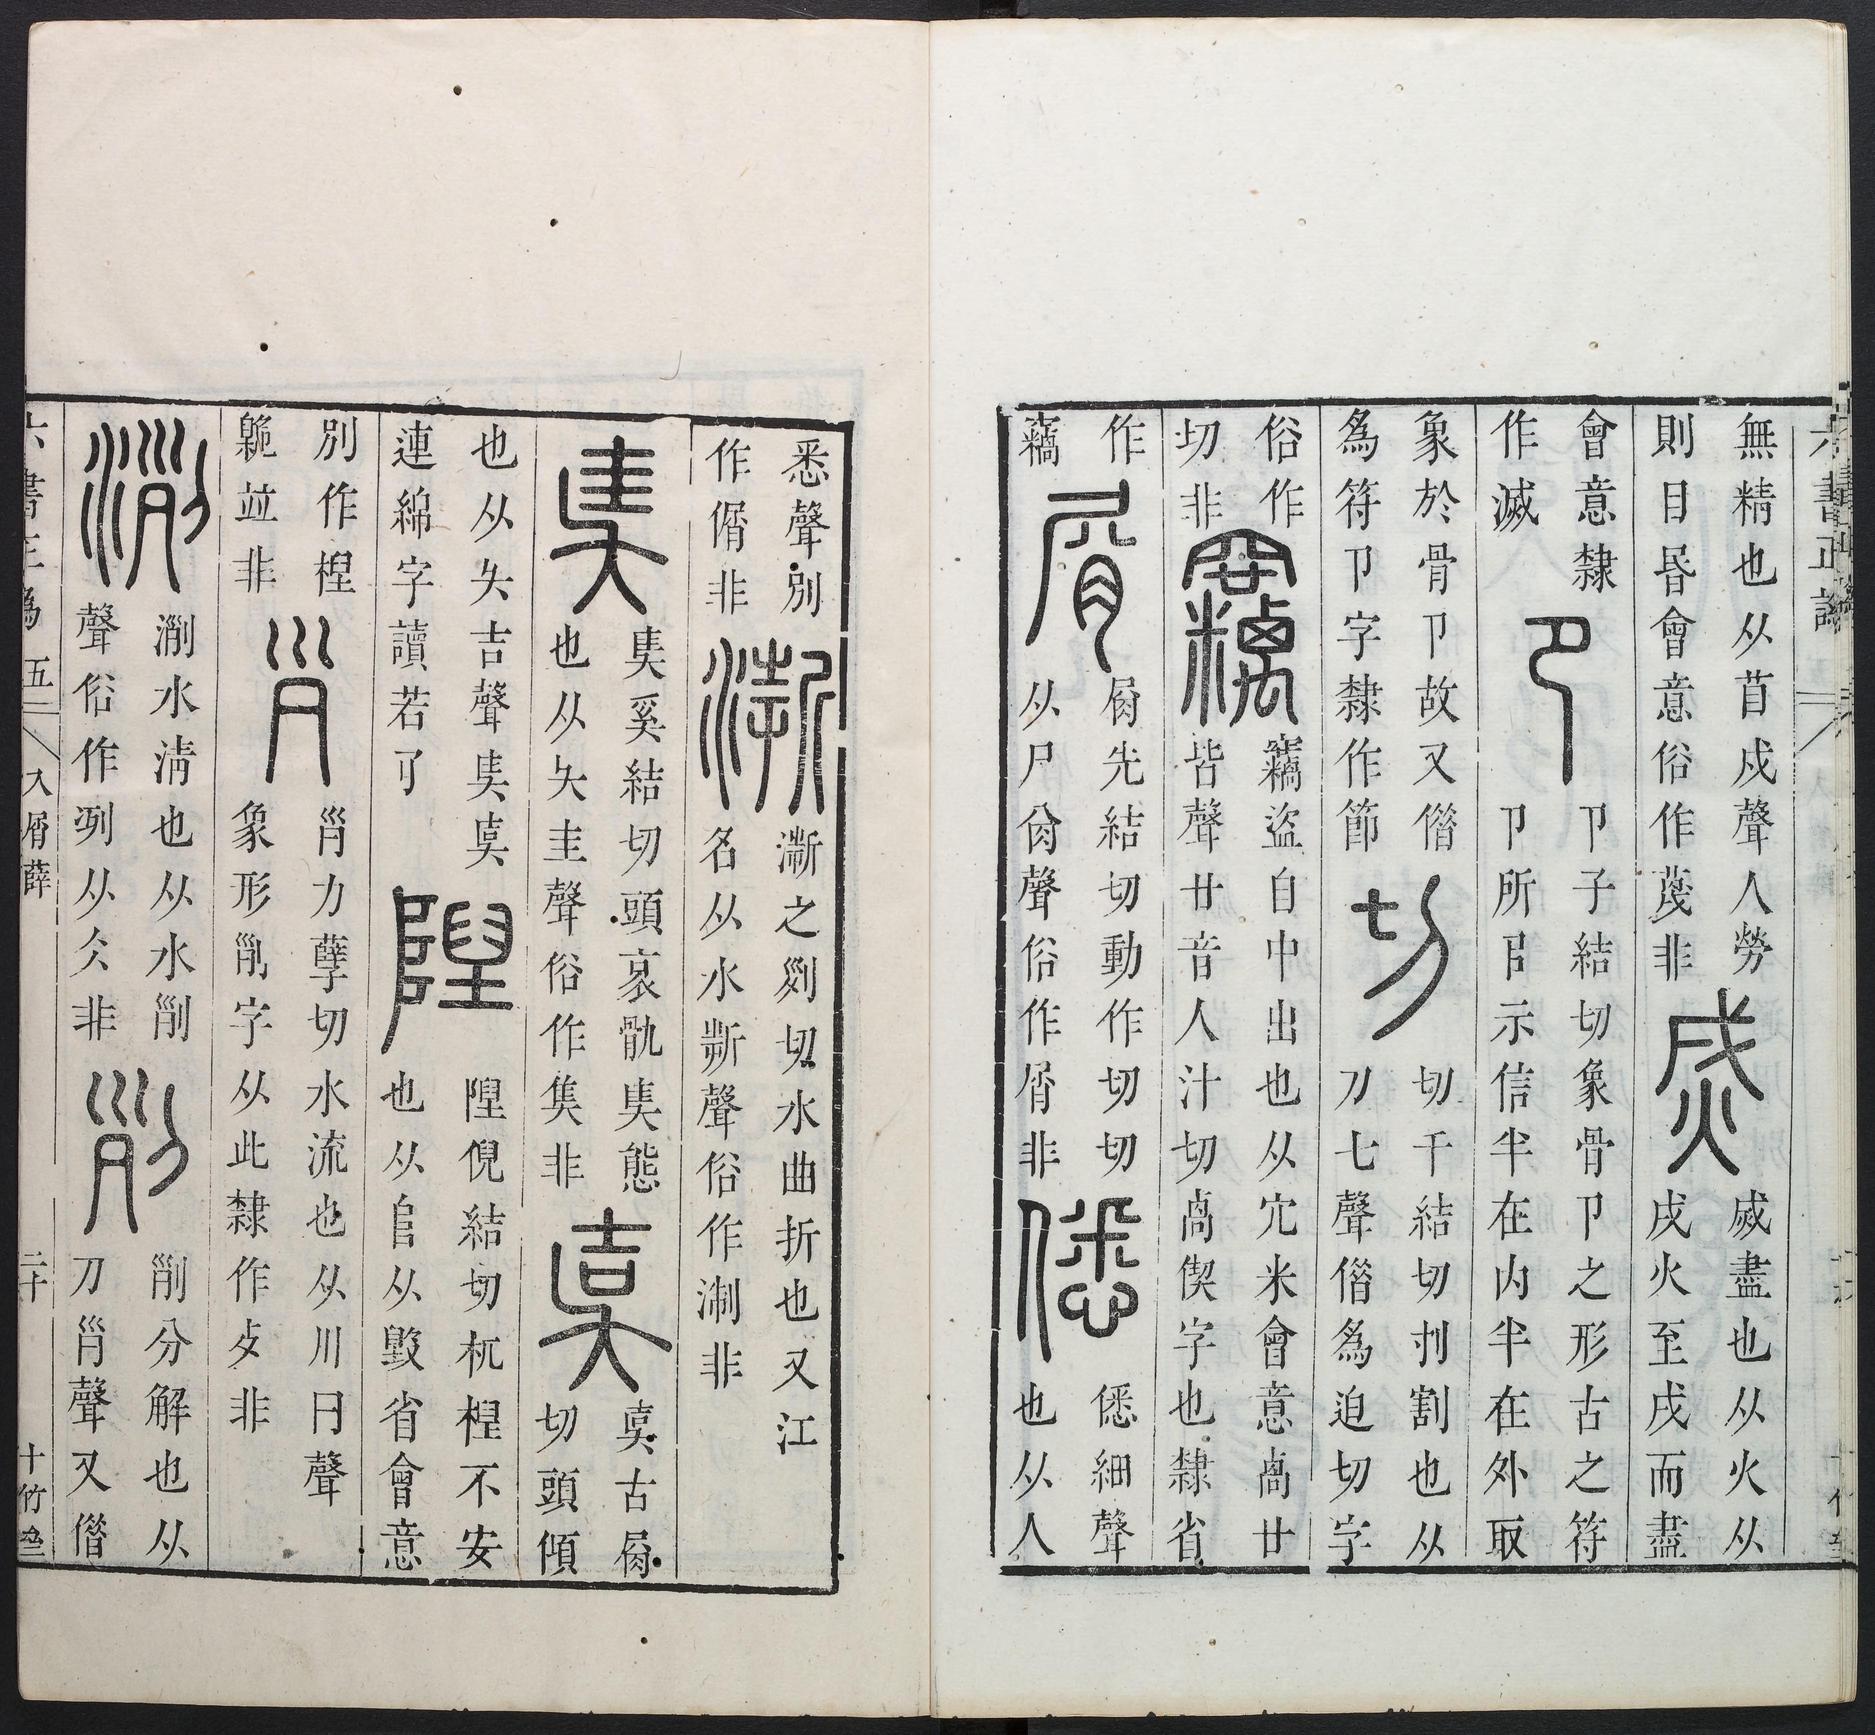 六書正譌
無精也从苜戍聲人勞
則目昬會意俗作蔑非
烕
烕盡也从火从
戌火至戌而盡
會意隸
作滅
卪
卪子結切象骨卪之形古之符
卪所㠯示信半在内半在外取
象於骨卪故又僭
為符卪字隸作節
切
切千結切刌割也从
刀七聲僭為迫切字
俗作
切非
竊
竊盜自中出也从穴米會意卨廿
皆聲廿音人汁切卨偰字也隸省
作
竊
屑
㞕先結切動作切切
从尸㕯聲俗作屑非
僁
僁細聲
也从人
悉聲別
作偦非
漸
漸之列切水曲折也又江
名从水斯聲俗作淛非
奊
奊奚結切頭衺骩奊態
也从夨圭聲俗作隻非
㚖
㚖古㞕
切頭傾
也从夨吉聲奊㚖
連綿字讀若孑
隉
隉倪結切杌楻不安
也从𨸏从毀省會意
別作楻
臲竝非
𡿪
𡿪力孽切水流也从川曰聲
象形𠛱字从此隸作歺非
瀏
𣸣水清也从水𠛱
聲俗作洌从歹非
𠛱
𠛱分解也从
刀𡿪聲又僭
六書正譌 五
入屑薛
二十
十竹齋